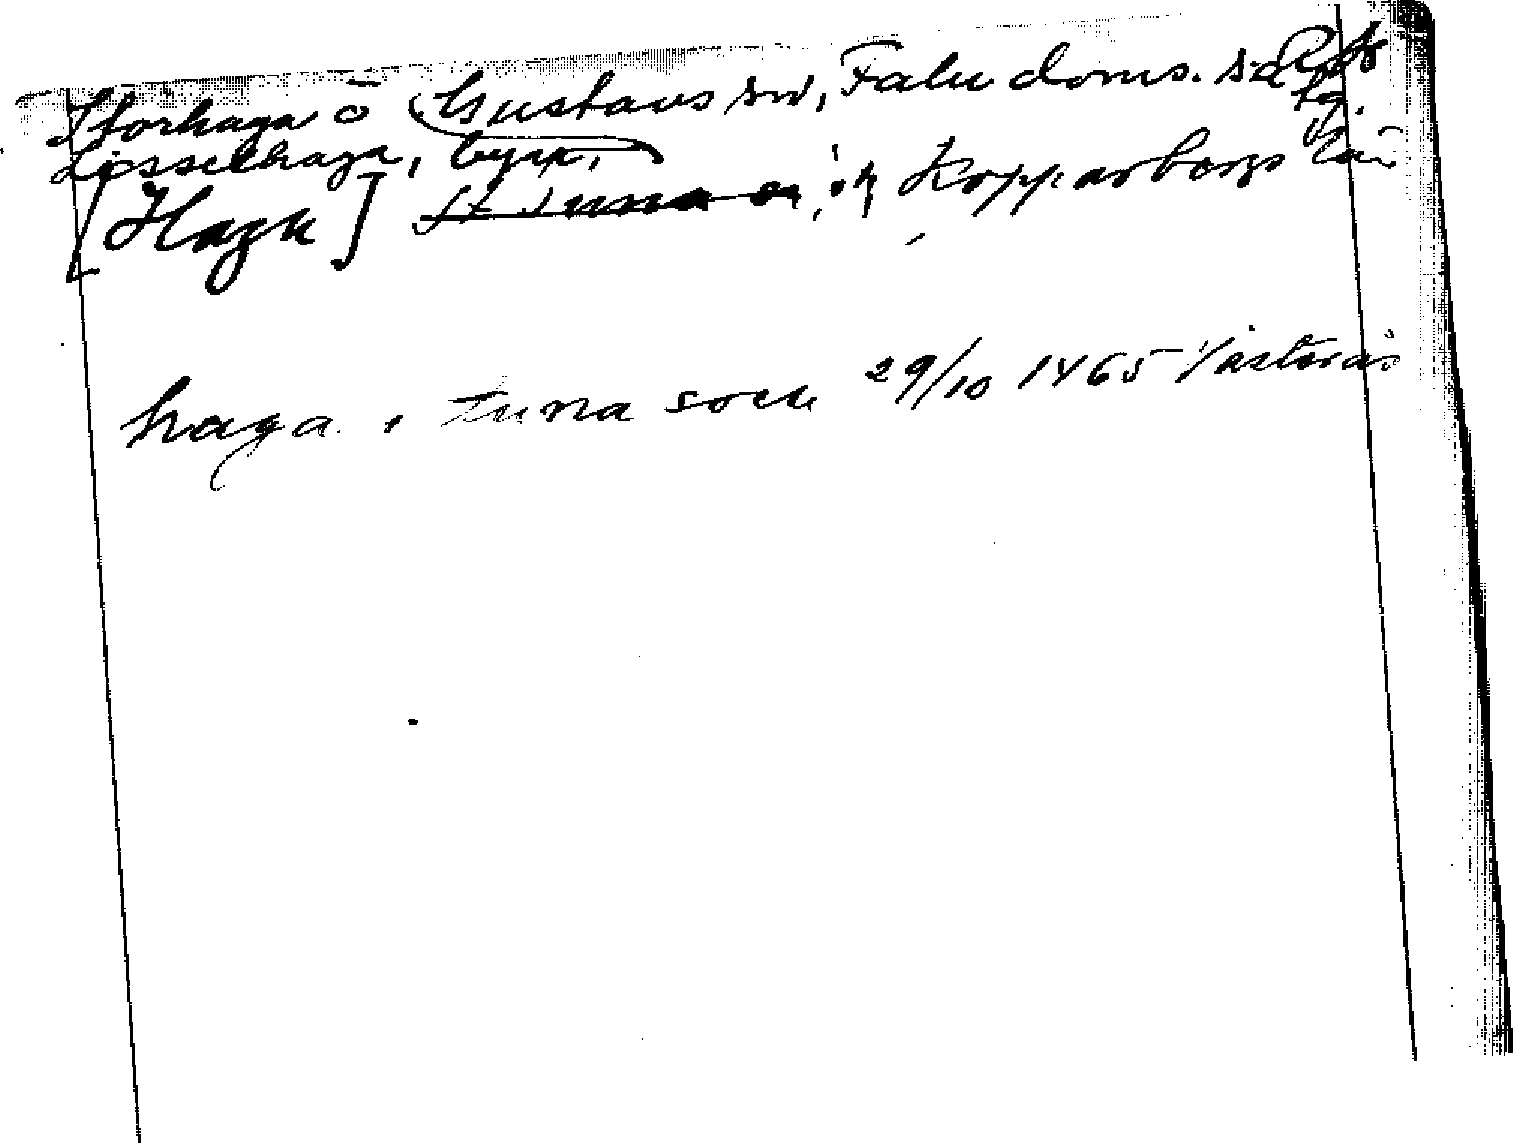 Storhaga o Gustavs sn, Falu doms. sa
Lisselhaga, byar,
[Haga] St Tuna sn, Kopparbergs län
haga i tuna sock 29/10 1465 Västerås